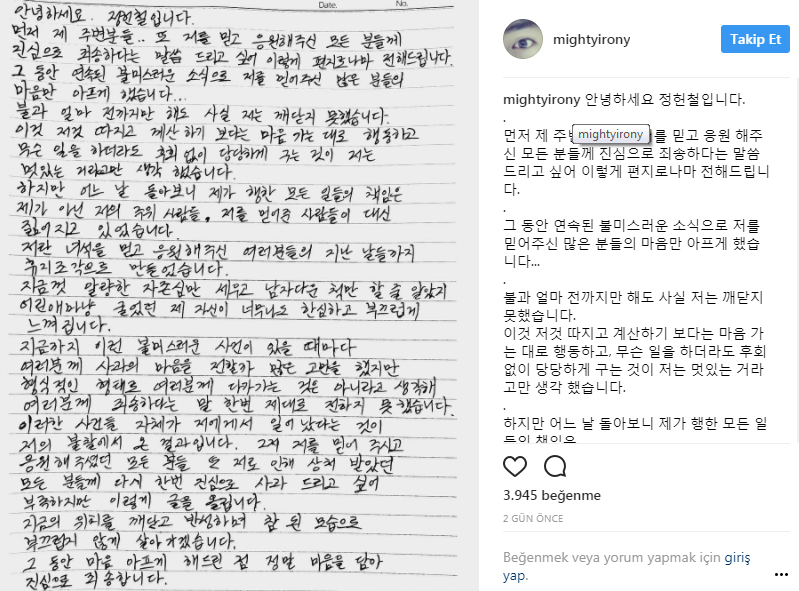 Date.
No.
안녕하세요. 정헌철입니다.
먼저 제 주변분들.. 또 저를 믿고 응원해주신 모든 분들께
진심으로 죄송하다는 말씀 드리고 싶어 이렇게 편지로나마 전해드립니다.
그 동안 연속된 불미스러운 소식으로 저를 믿어주신 많은 분들의
마음만 아프게 했습니다...
불과 얼마 전까지만 해도 사실 저는 깨닫지 못했습니다.
이것 저것 따지고 계산하기 보다는 마음 가는 대로 행동하고
무슨 일을 하더라도 후회 없이 당당하게 구는 것이 저는
멋있는 거라고만 생각 했습니다.
하지만 어느 날 돌아보니 제가 행한 모든 일들의 책임은
제가 아닌 저의 주위 사람들, 저를 믿어준 사람들이 대신
짊어지고 있었습니다.
저란 녀석을 믿고 응원해주신 여러분들의 지난 날들까지
휴지조각으로 만들었습니다.
지금껏 알량한 자존심만 세우고 남자다운 척만 할 줄 알았지
어린애마냥 굴었던 제 자신이 너무나도 한심하고 부끄럽게
느껴집니다.
지금까지 이런 불미스러운 사건이 있을 때마다
여러분께 사과의 마음을 전할까 많은 고민을 했지만
형식적인 형태로 여러분께 다가가는 것은 아니라고 생각해
여러분께 죄송하다는 말 한번 제대로 전하지 못했습니다.
이러한 사건들 자체가 저에게서 일어났다는 것이
저의 불찰에서 온 결과입니다. 그저 저를 믿어 주시고
응원해주셨던 모든 분들 또 저로 인해 상처 받았던
모든 분들께 다시 한번 진심으로 사과 드리고 싶어
부족하지만 이렇게 글을 올립니다.
지금의 위치를 깨닫고 반성하며 참 된 모습으로
부끄럽지 않게 살아가겠습니다.
그 동안 마음 아프게 해드린 점 정말 마음을 담아
진심으로 죄송합니다.
mightyirony
Takip Et
mightyirony 안녕하세요 정헌철입니다.
.
먼저 제 주변 mightyirony 를 믿고 응원 해주
신 모든 분들께 진심으로 죄송하다는 말씀
드리고 싶어 이렇게 편지로나마 전해드립니
다.
.
그 동안 연속된 불미스러운 소식으로 저를
믿어주신 많은 분들의 마음만 아프게 했습
니다...
.
불과 얼마 전까지만 해도 사실 저는 깨닫지
못했습니다.
이것 저것 따지고 계산하기 보다는 마음 가
는 대로 행동하고, 무슨 일을 하더라도 후회
없이 당당하게 구는 것이 저는 멋있는 거라
고만 생각 했습니다.
.
하지만 어느 날 돌아보니 제가 행한 모든 일
들의 책임은
3.945 beğenme
2 GÜN ÖNCE
Beğenmek veya yorum yapmak için giriş
yap.